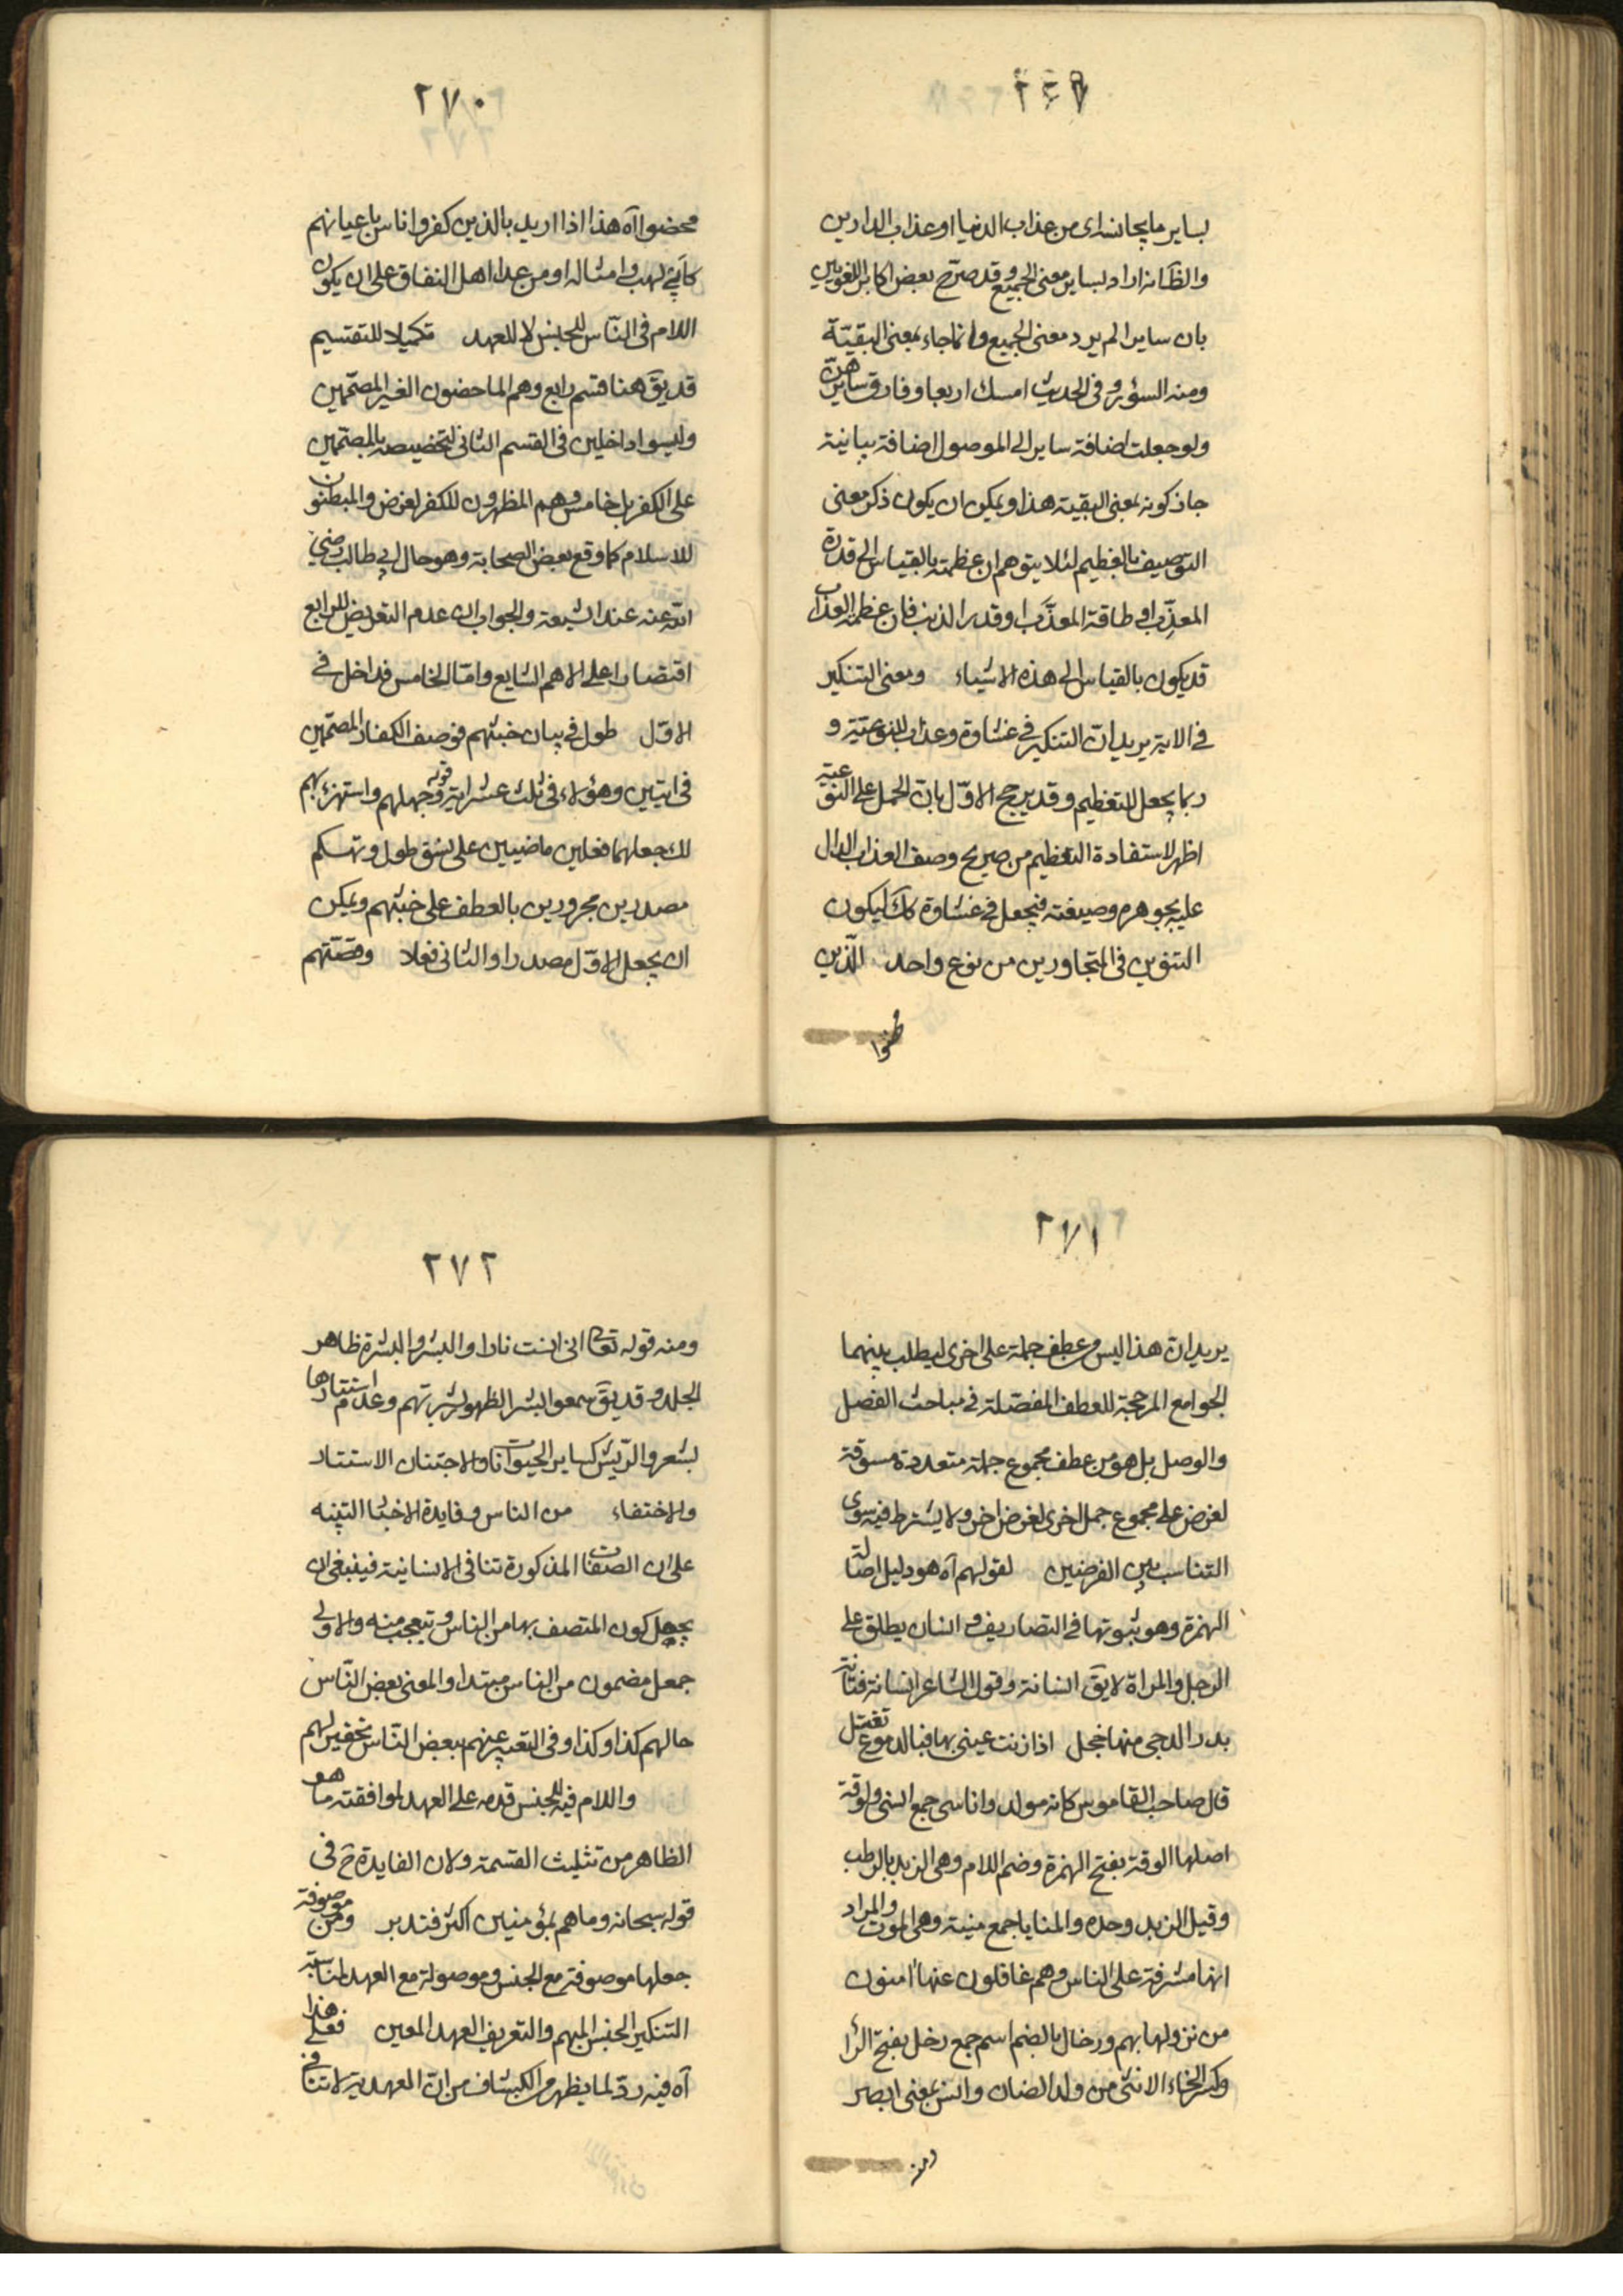 ٢٦٩
بساير ما يجانسه اى من عذاب الدنيا او عذاب الدارين
والظ انه اراد بساير معنى الجميع وقد صرّح بعض اكابر اللغويين
بان سايرا لم يرد معنى الجميع وانما جاء بمعنى البقيّة
ومنه السؤر وفى الحديث امسك اربعا وفارق سايرهنّ
ولو جعلت اضافة ساير الى الموصول اضافة بيانية
جاز كونه بمعنى البقية هذا ويمكن ان يكون ذكر معنى
التوصيف بالعظيم لئلا يتوهم ان عظمته بالقياس الى قدرة
المعذِّب او طاقة المعذَّب او قدر الذنب فان عظمة العذاب
قد يكون بالقياس الى هذه الاشياء ومعنى التنكير
فى الاية يريد ان التنكير فى غشاوة وعذاب للنوعيّة و
ربما يجعل للتعظيم وقد يرجح الاوّل بان الحمل على النوعية
اظهر لاستفادة التعظيم من صريح وصف العذاب الدال
عليه بجوهره وصيغته فيجعل فى غشاوة كك ليكون
التنوين فى المتجاورين من نوع واحد الذين
٢٧٠
محضوا آه هذا اذا اريد بالذين كفروا ناس باعيانهم
كابى لهب وامثاله او من عدا اهل النفاق على ان يكون
اللام فى النّاس للجنس لا للعهد تكميلا للتقسيم
قد يقَ هنا قسم رابع وهم الماحضون الغير المصمّمين
وليسوا داخلين فى القسم الثانى لتخصيصه بالمصمّمين
على الكفر بل خامس وهم المظهرون للكفر لغرض والمبطنون
للاسلام كما وقع لبعض الصحابة وهو حال ابى طالب رضى
الله عنه عند الشيعة والجواب ان عدم التعريض للرابع
اقتصارا على الاهم الشايع وامّا الخامس فداخل فى
الاوّل طول فى بيان خبثهم فوصف الكفار المصمّمين
فى ايتين وهؤلاء فى ثلث عشر اية قوله وجهلهم واستهزء بهم
لك جعلهما فعلين ماضيين على نسق طول وتهكم
مصدرين مجرورين بالعطف على خبثهم ويمكن
ان يجعل الاوّل مصدرا والثانى فعلا وقصّتهم
٢٧١
يريد ان هذا ليس من عطف جملة على اخرى ليطلب بينهما
الجوامع المرجحة للعطف المفصّلة فى مباحث الفصل
والوصل بل هو من عطف مجموع جملة متعددة مسوقة
لغرض على مجموع جمل اخرى لغرض اخر ولا يشترط فيه سوى
التناسب بين الغرضين لقولهم آه هو دليل اصالة
الهمزة وهو ثبوتها فى التصاريف وانسان يطلق على
الرجل والمراة لا يقَ انسانة وقول الشاعر انسانة فتّانة
بدر الدجى منها خجل اذا زنت عينى بها فبالدموع تغتسل
قال صاحب القاموس كانه مولد واناسى جمع انسى ولوقة
اصلها الوقة بفتح الهمزة وضم اللام وهى الزبد بالرطب
وقيل الزبد وحده والمنايا جمع منية وهى الموت والمراد
انها مشرفة على الناس وهم غافلون عنها امنون
من نزولها بهم ورخال بالضم اسم جمع رخل بفتح الرا
وكسر الخاء الانثى من ولد الضان وانس بمعنى ابصر
ومنه
٢٧٢
ومنه قوله تعا انى انست نارا والبشر والبشرة ظاهر
الجلد وقد يقَ سموا البشر لظهور بشرتهم وعدم استتارها
بشعر والرّيش كساير الحيوانات والاجتنان الاستتار
والاختفاء من الناس وفايدة الاخبا التنبيه
على ان الصفات المذكورة تنافى الانسانية فينبغى ان
يجهل كون المتصف بها من الناس وتيعجب منه والاولى
جعل مضمون من الناس مبتدا والمعنى بعض النّاس
حالهم كذا وكذا وفى التعبير عنهم ببعض النّاس تحقير لهم
واللام فيه للجنس قدمه على العهد لموافقته ما هو
الظاهر من تثليث القسمة ولان الفايدة ح فى
قوله سبحانه وما هم بمؤمنين اكثر فتدبر ومن موصوفة
جعلها موصوفة مع الجنس وموصولة مع العهد لمناسبة
التنكير الجنس المبهم والتعريف العهد المعين فعلى هذا
آه فيه ردّ لما يظهر من الكشاف من ان العهدية لا تنافى